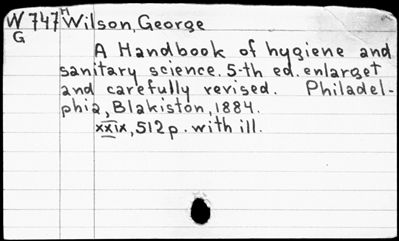 W 747 H Wilson, George
G
A Handbook of hygiene and
sanitary science. 5-th ed. enlarget
and carefully revised. Philadel-
phia, Blakiston, 1884.
xxix, 512 p. with ill.